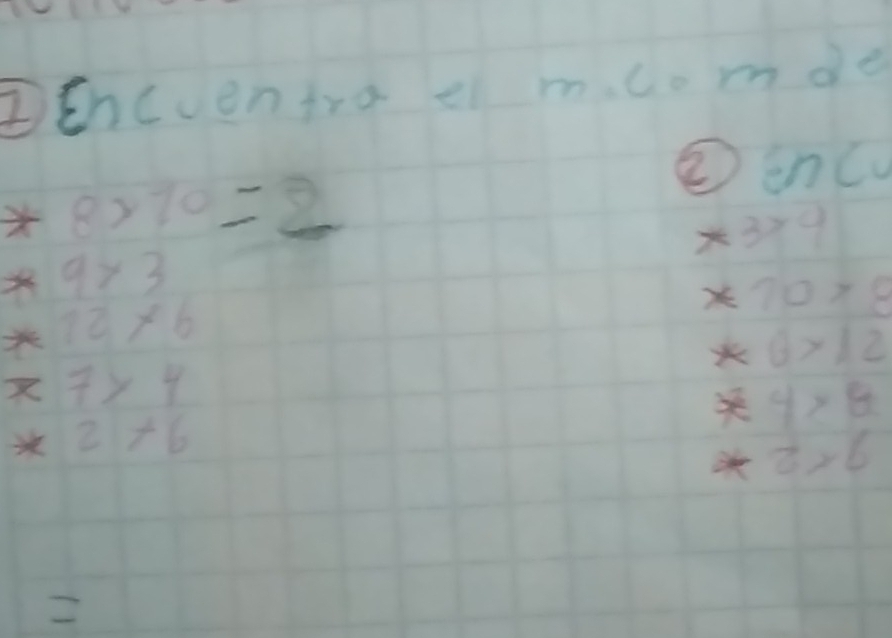 1 Encuentra el m.c.m de
* 8 y 10 = 2
* 9 y 3
* 12 y 6
* 7 y 4
* 2 y 6
=
2 Encu
* 3 y 9
* 10 y 8
* 6 y 12
* 4 y 8
* 2 y 6